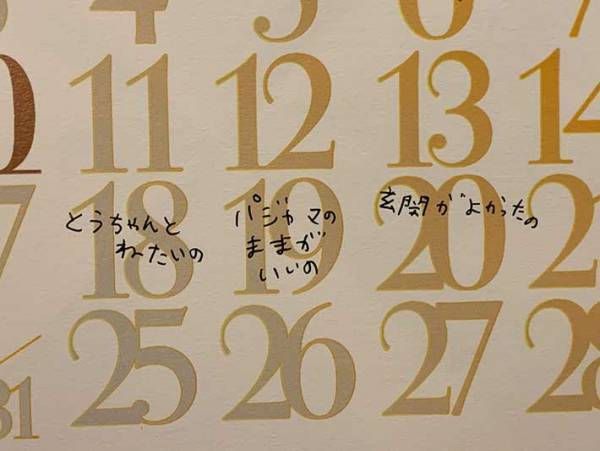 3 4 5 6 7
10 11 12 13 14
17 18 19 20 21
とうちゃんと
ねたいの
パジャマの
ままが
いいの
玄関がよかったの
31 25 26 27 28